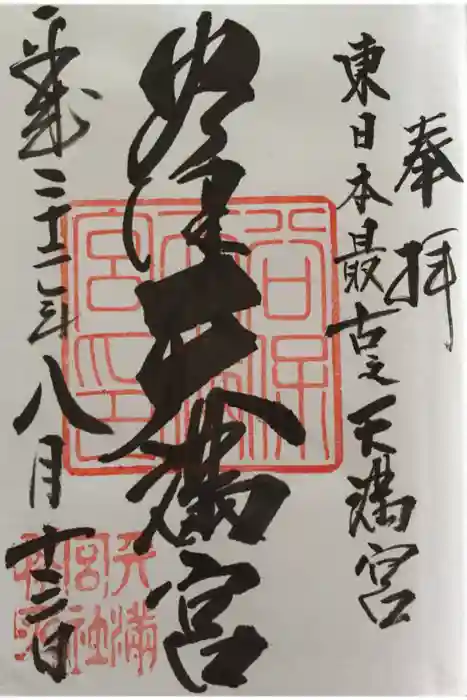 奉拝
東日本最古之天満宮
天満宮
平成二十二年八月十三日
谷保
天満
宮印
天満
宮社
務所